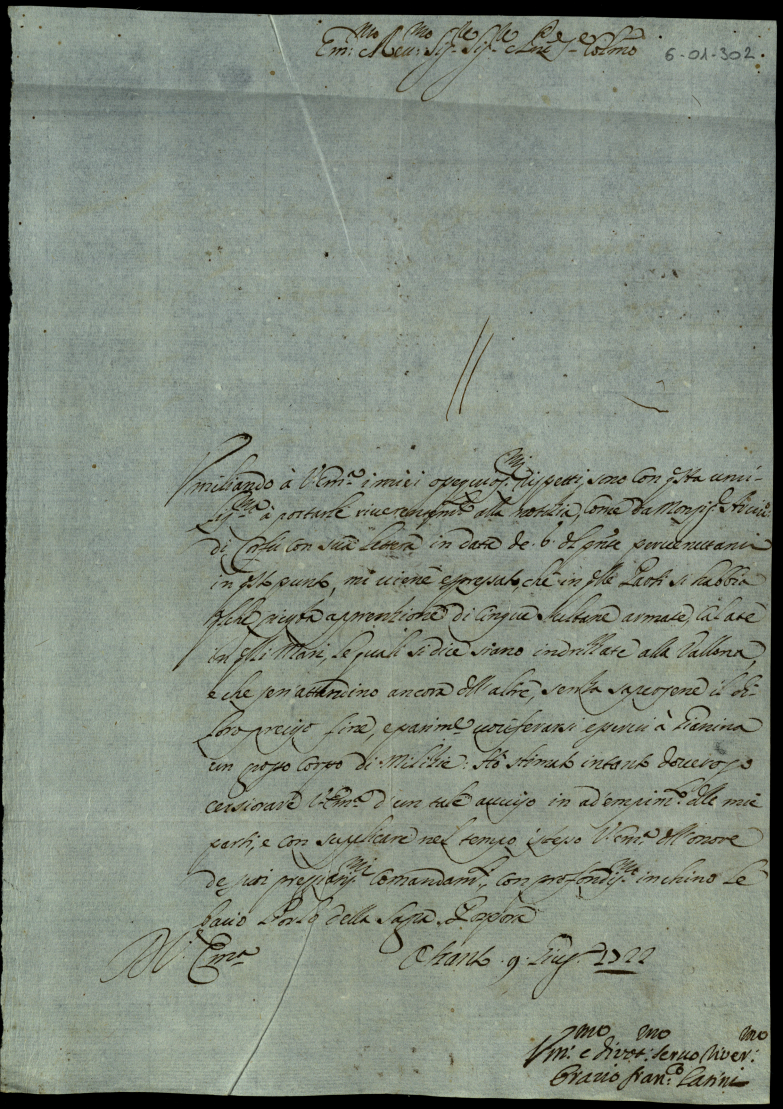 Em:mo e Reu:mo Sig:re Sig:re e Pne Colmo
6-01-302.
Umiliando à V.Em:a i miei ossequiosi:mi rispetti, sono con qsta umi-
lis:ma à portarle riuerentem:te alla notizia, come da Monsig:r Arciu:
di Corfù con sua lettera in data de 6. del pnte peruenutami
in qsto punto, mi uiene espressato, che in qlle Parti si habbia
qlche apprenzione di cinque sultane armate calate
in qlli Mari, le quali si dice siano indrizzate alla Vallona,
e che sen'attendino ancora dell'altre, senza sapersene il di
loro preciso fine, e parim:te uociferarsi esserui à Giannina
un grosso corpo di Milizie. Hò stimato intanto douerne
cerziorare V.Em:a d'un tale auuiso in ademspim:to delle mie
parti, e con supplicare nel tempo istesso V.Em:a dell'onore
de suoi pregiatis:mi comandam:ti, con profondis:mo inchino le
bacio l'orlo della Sagra Porpora
D. V. Em:a Otranto 9. Giug:o 1722
Um:mo e diuot:mo seruo riuer:mo
Orazio Fran:co Latini